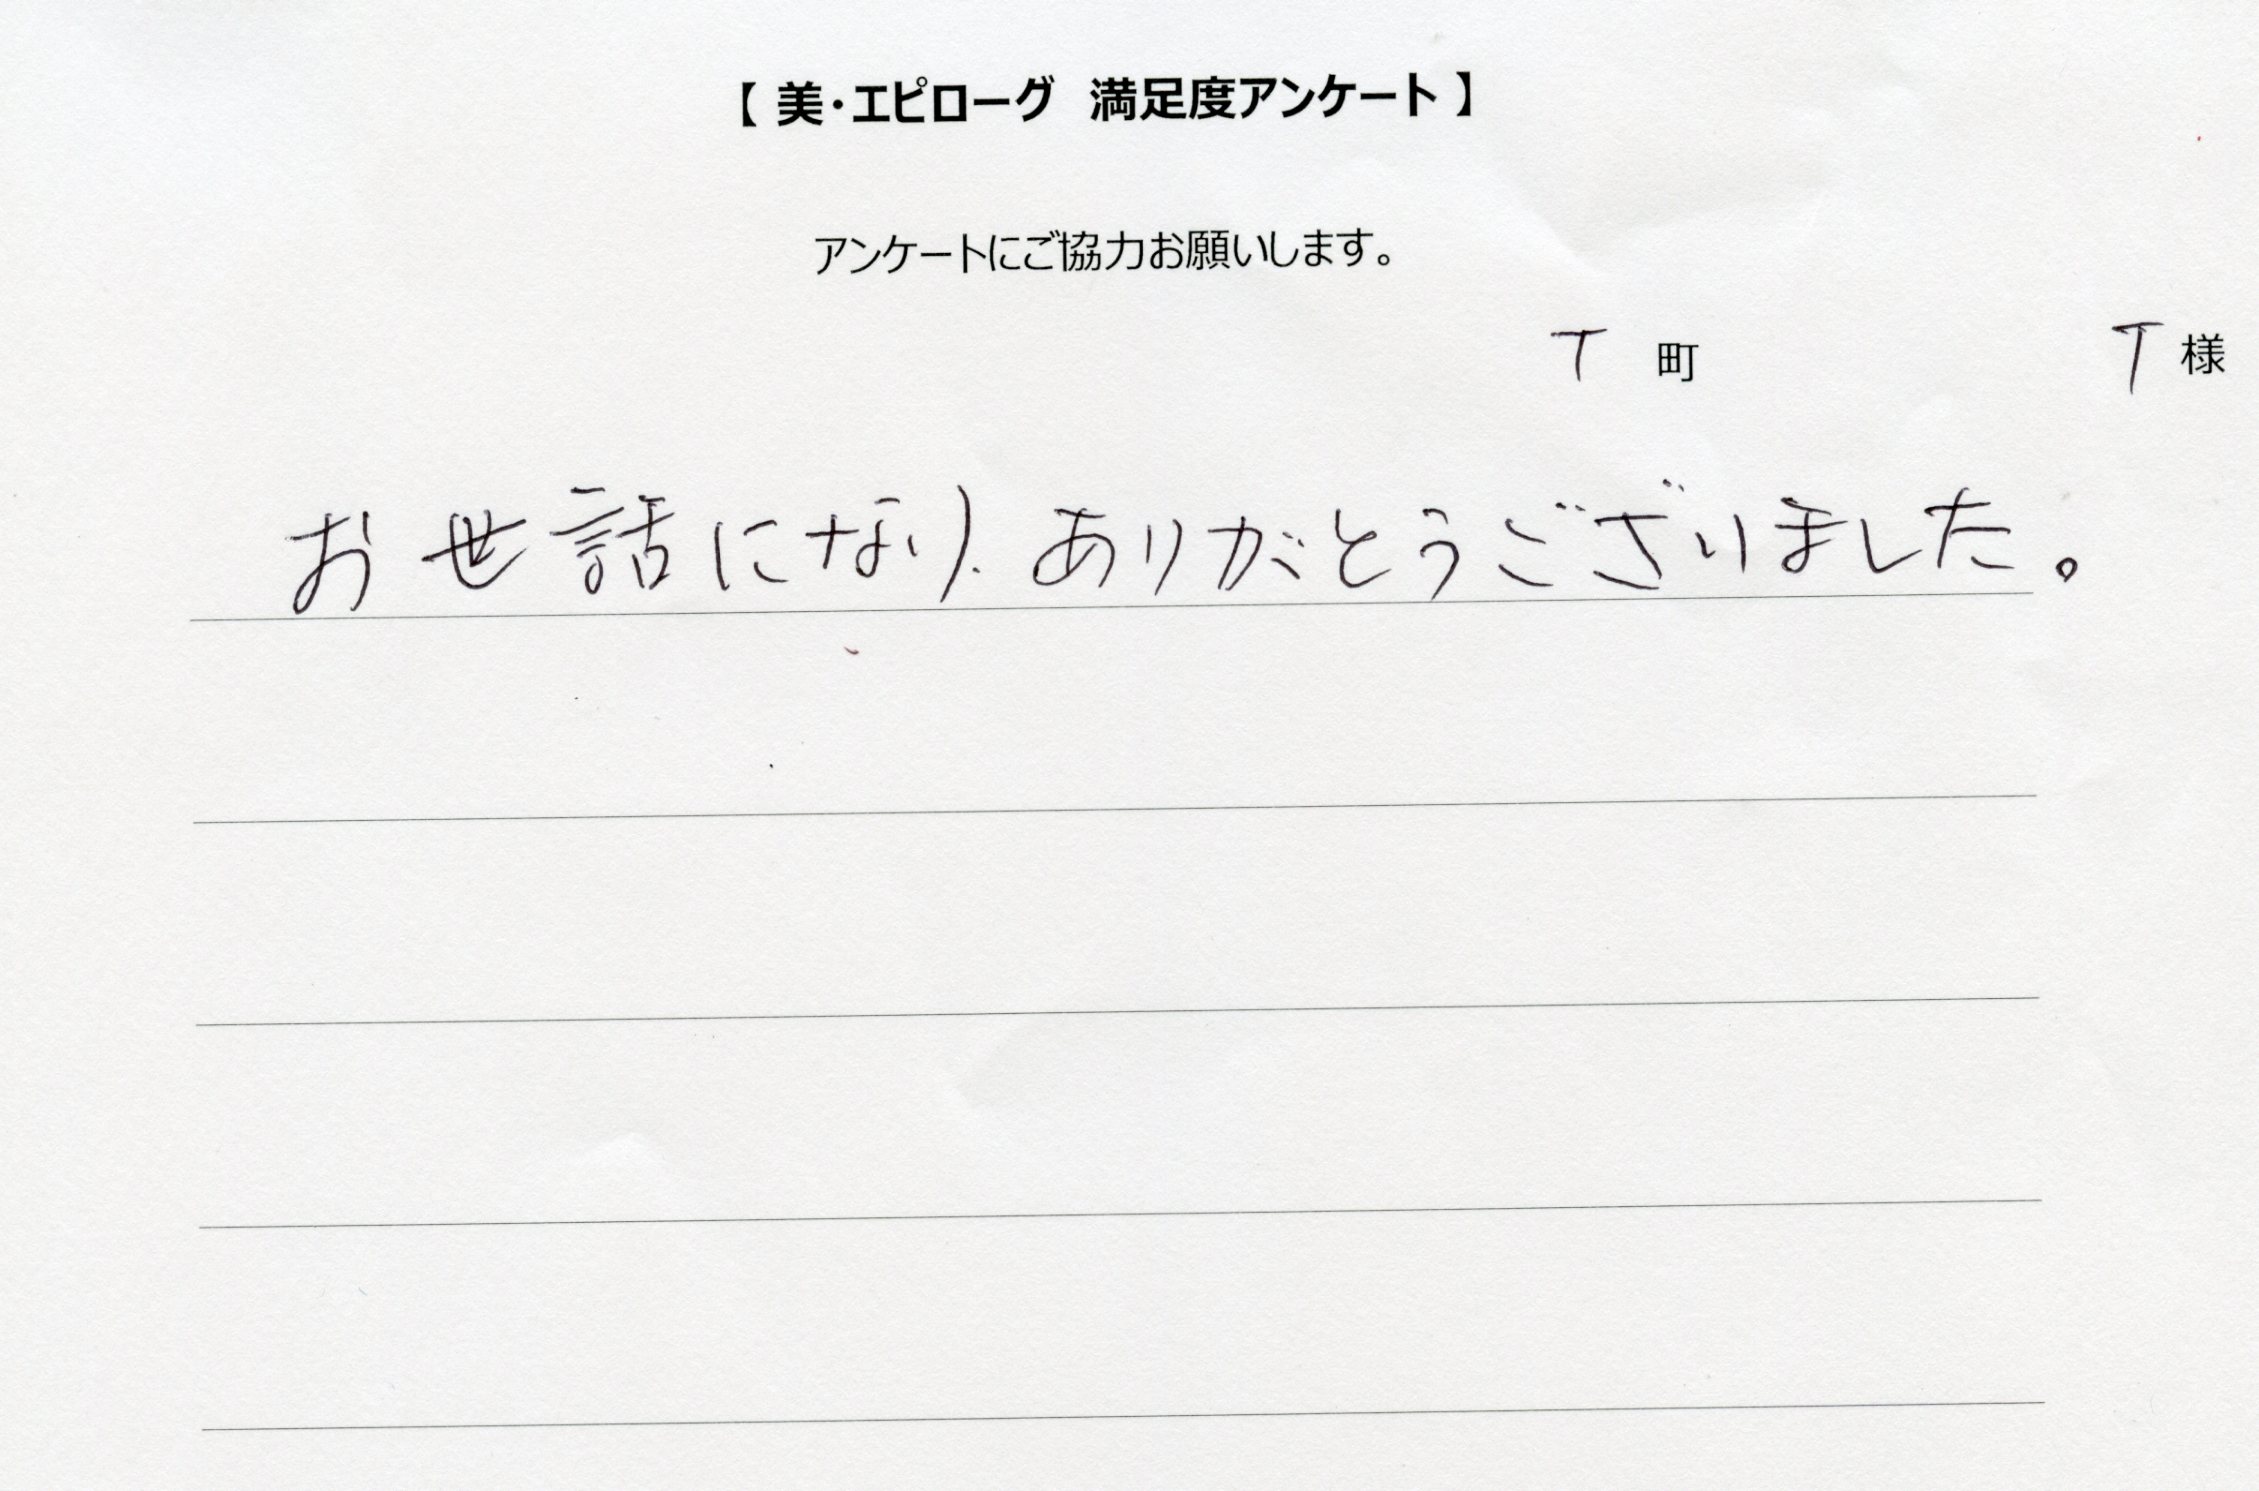 【 美・エピローグ 満足度アンケート 】
アンケートにご協力お願いします。
T 町 T 様
お世話になり、ありがとうございました。